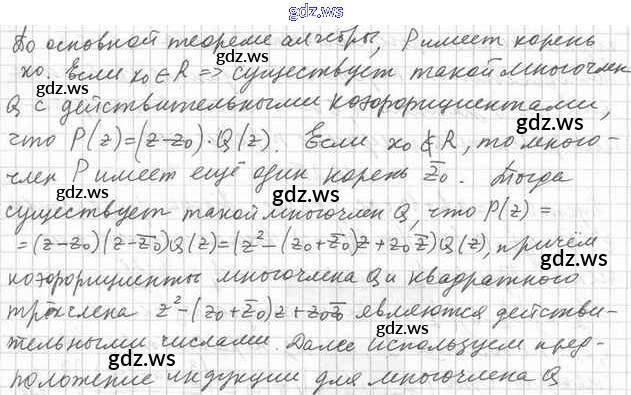 gdz.ws
По основной теореме алгебры, P имеет корень
x₀. Если x₀ ∈ R => существует такой многочлен
gdz.ws
Q с действительными коэффициентами,
что P(z)=(z-z₀)·Q(z). Если x₀ ∉ R, то много-
gdz.ws
член P имеет ещё один корень z̅₀. Тогда
gdz.ws gdz.ws
существует такой многочлен Q, что P(z) =
= (z-z₀)(z-z̅₀)Q(z)=(z²-(z₀+z̅₀)z+z₀z̅)Q(z), причём
gdz.ws
коэффициенты многочлена Q и квадратного
gdz.ws
трёхчлена z²-(z₀+z̅₀)z+z₀z̅₀ являются действи-
gdz.ws
тельными числами. Далее используем пред-
gdz.ws
положение индукции для многочлена Q
gdz.ws